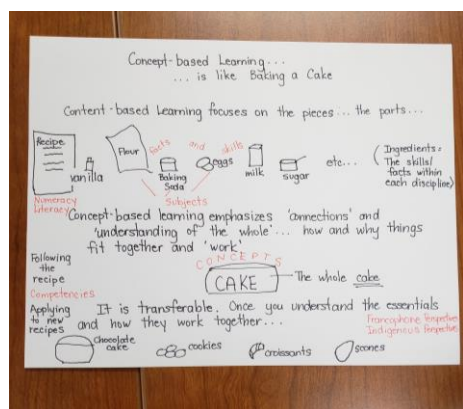 Concept-based Learning...
... is like Baking a Cake
Content-based Learning focuses on the pieces... the parts...
Recipe
vanilla
Flour
facts and skills
Baking Soda
eggs
milk
sugar
etc...
(Ingredients:
The skills/
facts within
each discipline)
Numeracy
Literacy
Subjects
Concept-based learning emphasizes 'connections' and
'understanding of the whole'... how and why things
fit together and 'work'
CONCEPTS
Following
the
recipe
CAKE
The whole cake
Competencies
It is transferable. Once you understand the essentials
and how they work together...
Applying
to new
recipes
Francophone Perspective
Indigenous Perspective
chocolate
cake
cookies
croissants
scones